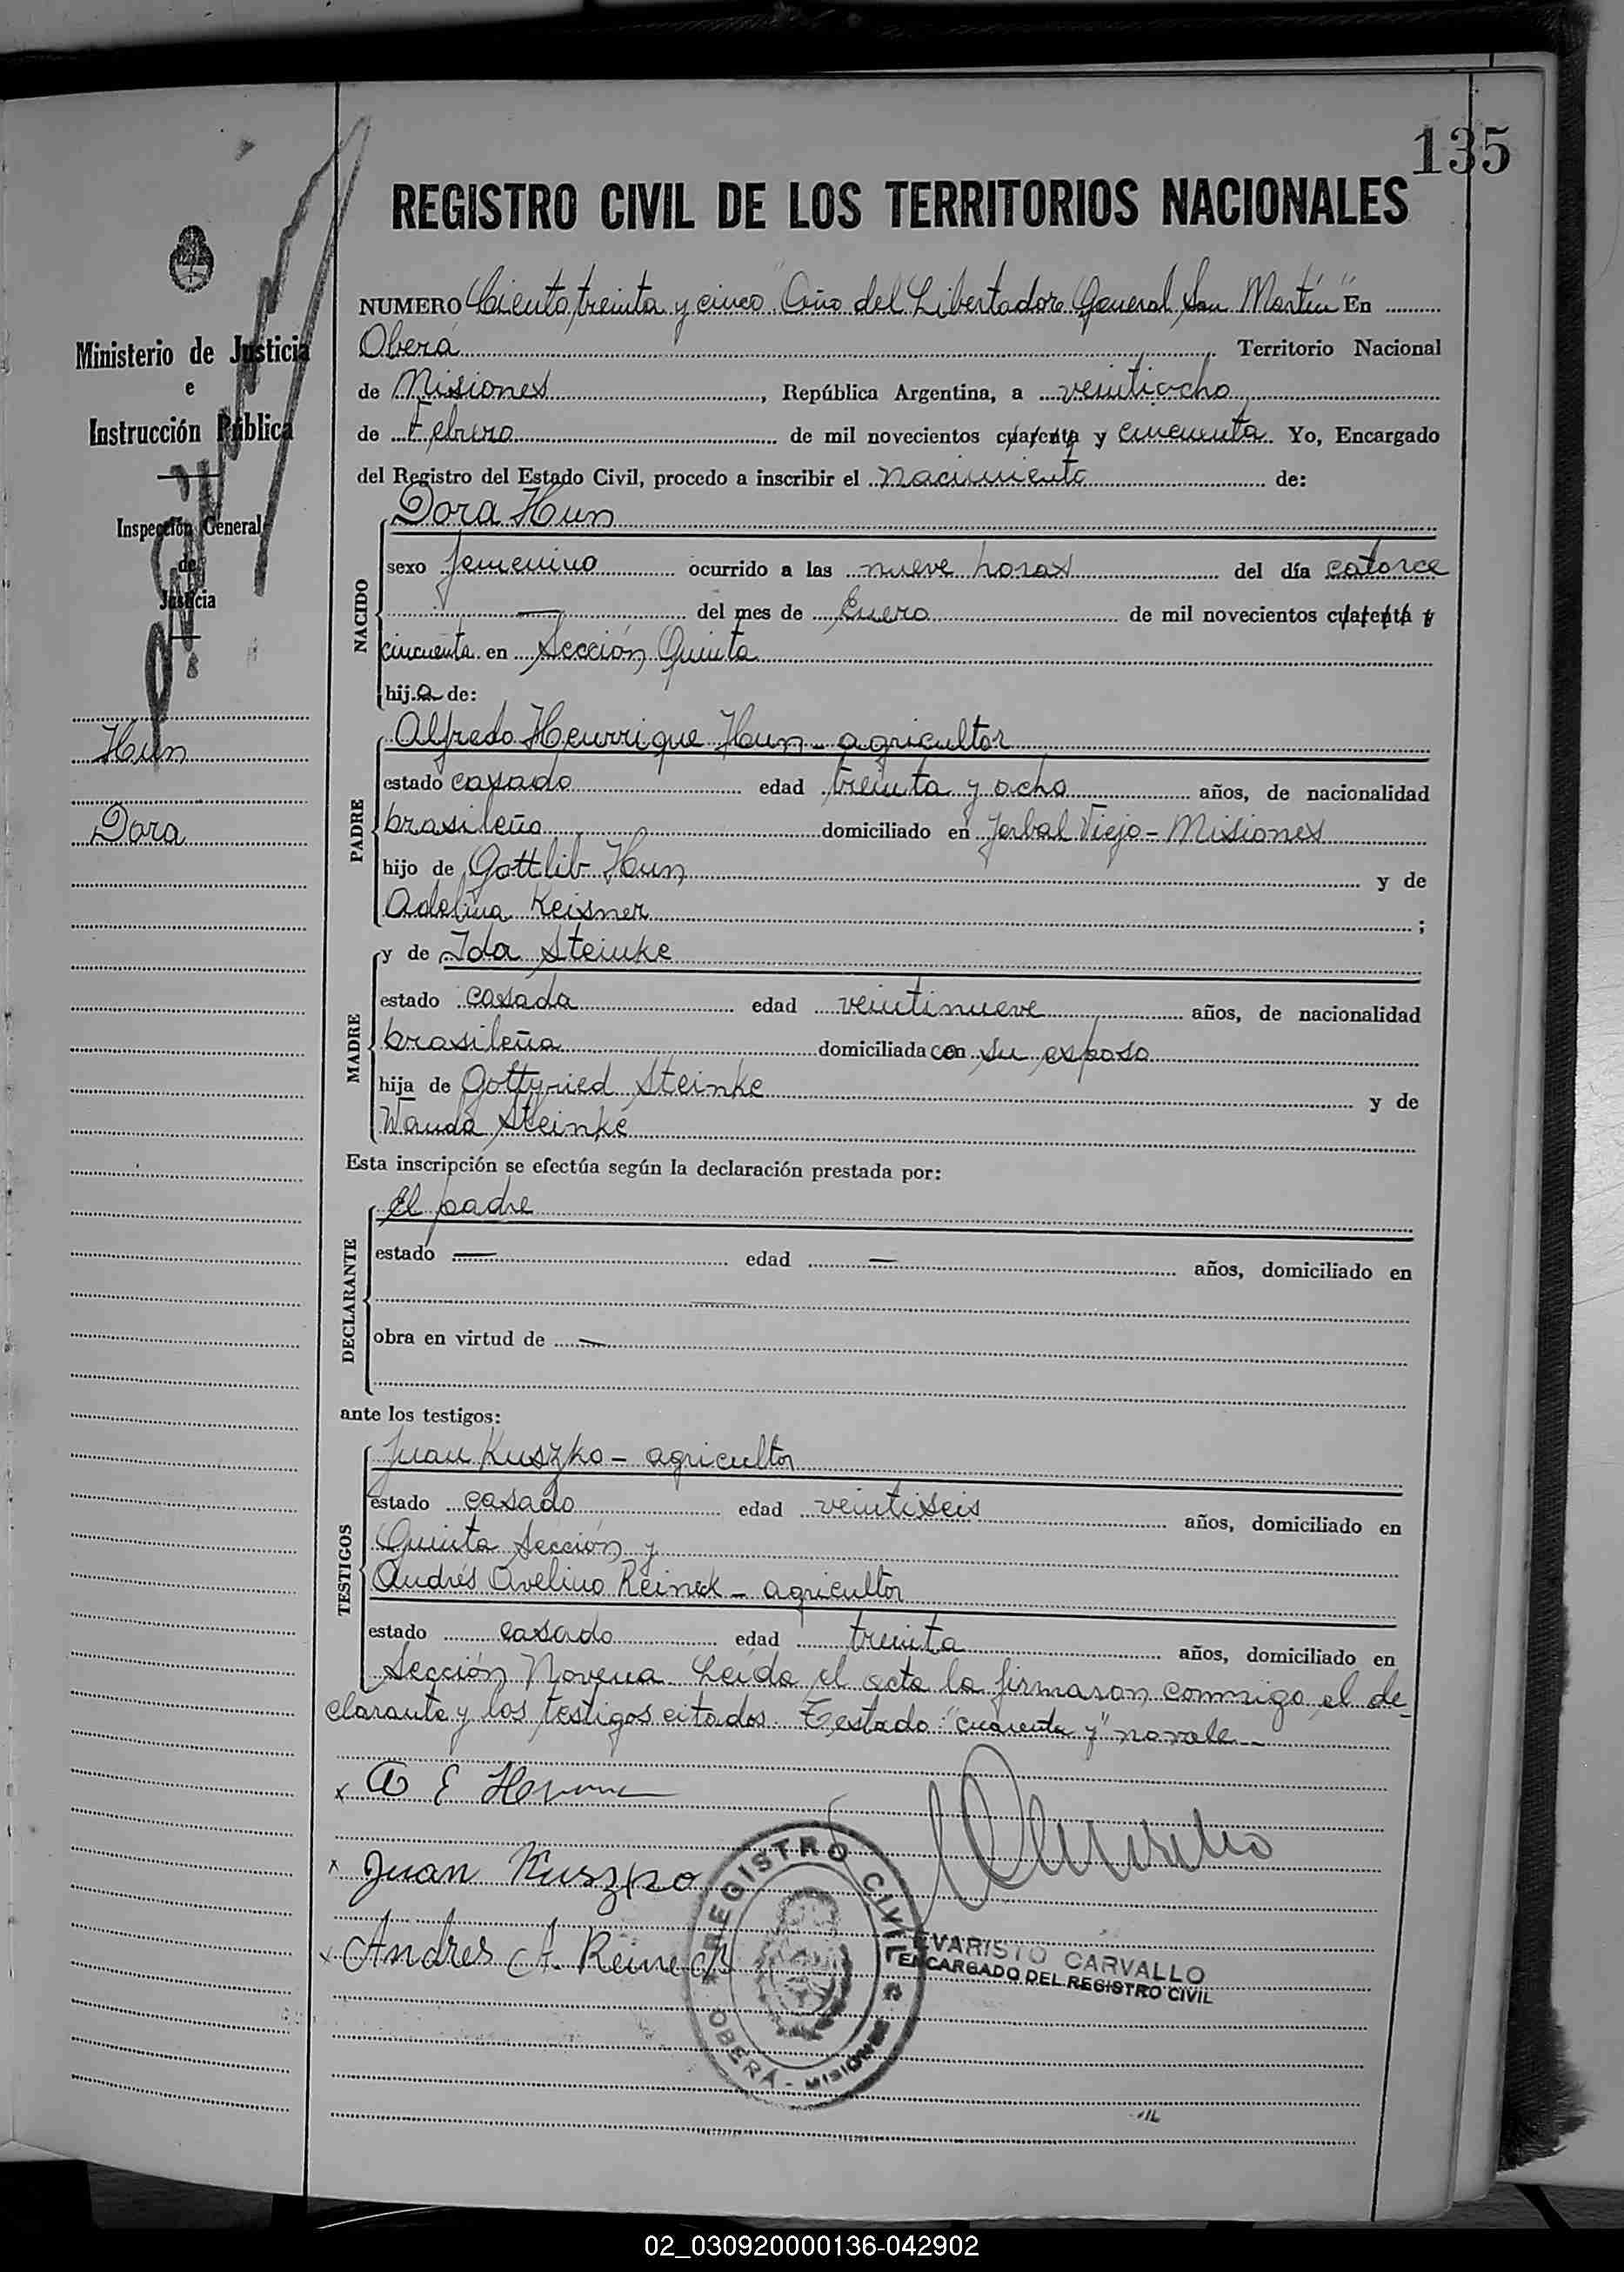 135
REGISTRO CIVIL DE LOS TERRITORIOS NACIONALES
Ministerio de Justicia
e
Instrucción Pública
Inspección General
de
Justicia
Hun
Dora
NUMERO Ciento treinta y cinco "Año del Libertador General San Martín" En
Oberá Territorio Nacional
de Misiones, República Argentina, a veintiocho
de Febrero de mil novecientos cuarenta y cincuenta. Yo, Encargado
del Registro del Estado Civil, procedo a inscribir el nacimiento de:
NACIDO
Dora Hun
sexo femenino ocurrido a las nueve horas del día catorce
— del mes de Enero de mil novecientos cuarenta y
cincuenta en Sección Quinta
hija de:
PADRE
Alfredo Henrrique Hun - agricultor
estado casado edad treinta y ocho años, de nacionalidad
brasileño domiciliado en Yerbal Viejo - Misiones
hijo de Gottlib Hun y de
Adolina Keisner ;
MADRE
y de Ida Steinke
estado casada edad veintinueve años, de nacionalidad
brasileña domiciliada con su esposo
hija de Gottfried Steinke y de
Wanda Steinke
Esta inscripción se efectúa según la declaración prestada por:
DECLARANTE
El padre
estado — edad — años, domiciliado en
obra en virtud de —
ante los testigos:
TESTIGOS
Juan Kuszko - agricultor
estado casado edad veintiseis años, domiciliado en
Quinta Sección y
Andrés Avelino Reineck - agricultor
estado casado edad treinta años, domiciliado en
Sección Novena. Leída el acta la firmaron conmigo el de-
clarante y los testigos citados. Testado: "cuarenta y" no vale -
x A E
x Juan Kuszko
x Andres A. Reineck
REGISTRO CIVIL
OBERÁ - MISIONES
EVARISTO CARVALLO
ENCARGADO DEL REGISTRO CIVIL
02_030920000136-042902